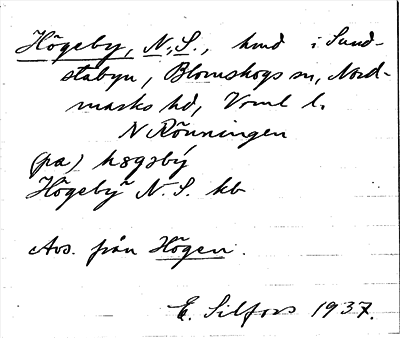 Högeby, N., S., hmd i Sund-
stabyn, Blomskogs sn, Nord-
marks hd, Vrml l.
N Rönningen
(pa) høgəbý
Högeby N. S. kb
Avs. från Högen.
E. Silfors 1937.